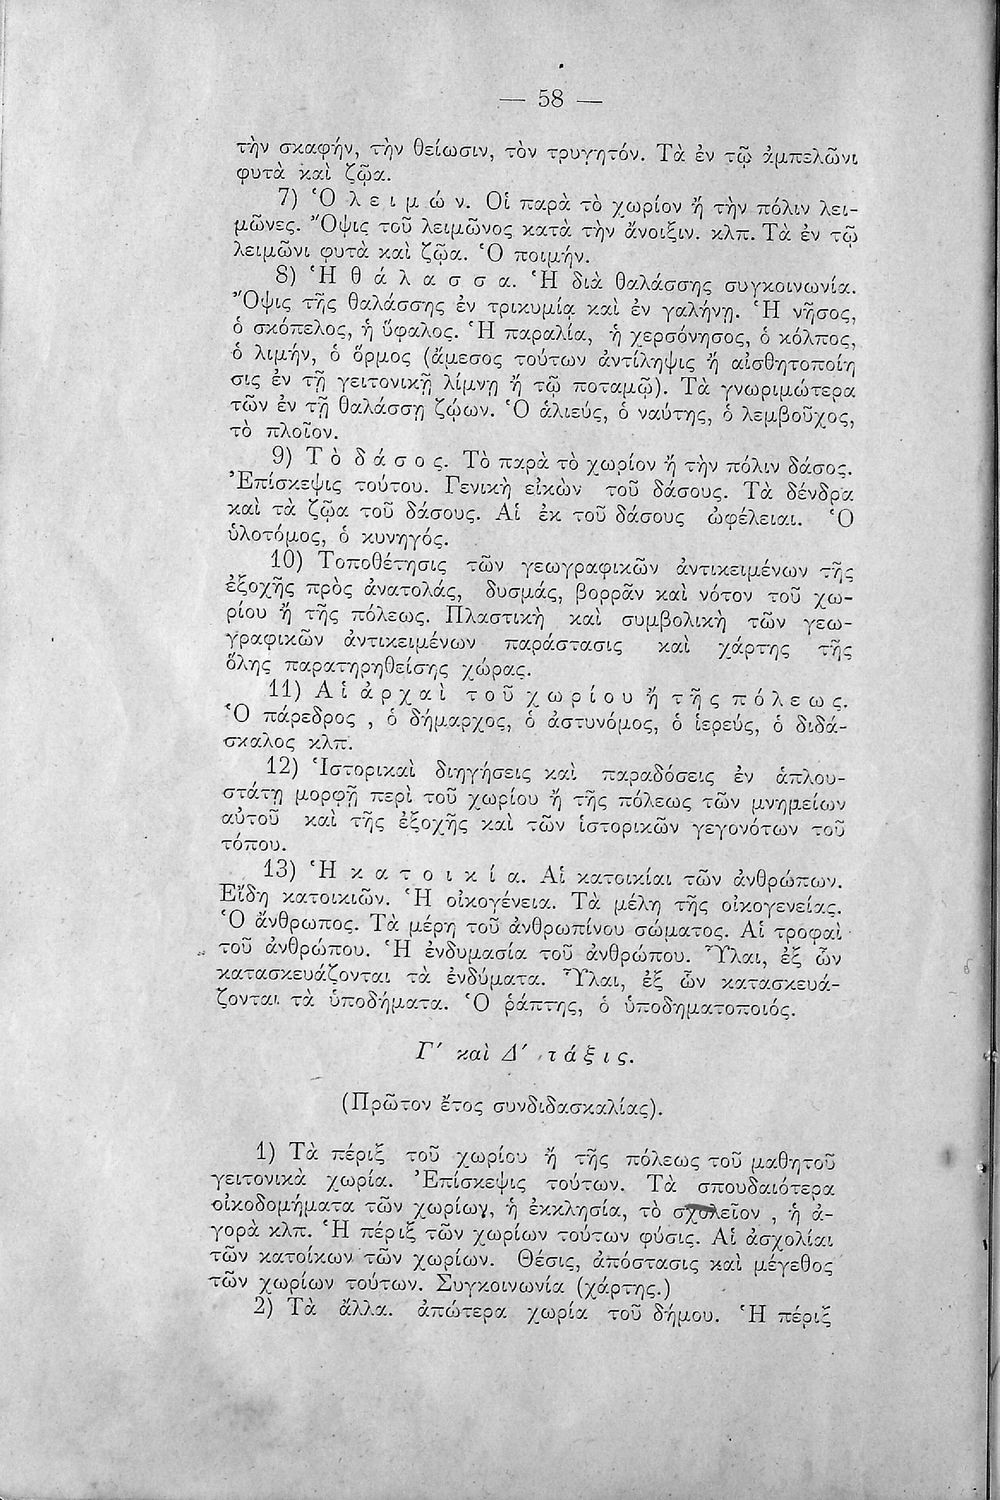 — 58 —
τὴν σκαφήν, τὴν θείωσιν, τὸν τρυγητόν. Τὰ ἐν τῷ ἀμπελῶνι
φυτὰ καὶ ζῷα.
7) Ὁ λ ε ι μ ώ ν. Οἱ παρὰ τὸ χωρίον ἢ τὴν πόλιν λει-
μῶνες. Ὄψις τοῦ λειμῶνος κατὰ τὴν ἄνοιξιν. κλπ. Τὰ ἐν τῷ
λειμῶνι φυτὰ καὶ ζῷα. Ὁ ποιμήν.
8) Ἡ θ ά λ α σ σ α. Ἡ διὰ θαλάσσης συγκοινωνία.
Ὄψις τῆς θαλάσσης ἐν τρικυμίᾳ καὶ ἐν γαλήνῃ. Ἡ νῆσος,
ὁ σκόπελος, ἡ ὕφαλος. Ἡ παραλία, ἡ χερσόνησος, ὁ κόλπος,
ὁ λιμήν, ὁ ὅρμος (ἄμεσος τούτων ἀντίληψις ἢ αἰσθητοποίη
σις ἐν τῇ γειτονικῇ λίμνῃ ἢ τῷ ποταμῷ). Τὰ γνωριμώτερα
τῶν ἐν τῇ θαλάσσῃ ζῴων. Ὁ ἁλιεύς, ὁ ναύτης, ὁ λεμβοῦχος,
τὸ πλοῖον.
9) Τ ὸ δ ά σ ο ς. Τὸ παρὰ τὸ χωρίον ἢ τὴν πόλιν δάσος.
Ἐπίσκεψις τούτου. Γενικὴ εἰκὼν τοῦ δάσους. Τὰ δένδρα
καὶ τὰ ζῷα τοῦ δάσους. Αἱ ἐκ τοῦ δάσους ὠφέλειαι. Ὁ
ὑλοτόμος, ὁ κυνηγός.
10) Τοποθέτησις τῶν γεωγραφικῶν ἀντικειμένων τῆς
ἐξοχῆς πρὸς ἀνατολάς, δυσμάς, βορρᾶν καὶ νότον τοῦ χω-
ρίου ἢ τῆς πόλεως. Πλαστικὴ καὶ συμβολικὴ τῶν γεω-
γραφικῶν ἀντικειμένων παράστασις καὶ χάρτης τῆς
ὅλης παρατηρηθείσης χώρας.
11) Α ἱ ἀ ρ χ α ὶ τ ο ῦ χ ω ρ ί ο υ ἢ τ ῆ ς π ό λ ε ω ς.
Ὁ πάρεδρος , ὁ δήμαρχος, ὁ ἀστυνόμος, ὁ ἱερεύς, ὁ διδά-
σκαλος κλπ.
12) Ἱστορικαὶ διηγήσεις καὶ παραδόσεις ἐν ἁπλου-
στάτῃ μορφῇ περὶ τοῦ χωρίου ἢ τῆς πόλεως τῶν μνημείων
αὐτοῦ καὶ τῆς ἐξοχῆς καὶ τῶν ἱστορικῶν γεγονότων τοῦ
τόπου.
13) Ἡ κ α τ ο ι κ ί α. Αἱ κατοικίαι τῶν ἀνθρώπων.
Εἴδη κατοικιῶν. Ἡ οἰκογένεια. Τὰ μέλη τῆς οἰκογενείας.
Ὁ ἄνθρωπος. Τὰ μέρη τοῦ ἀνθρωπίνου σώματος. Αἱ τροφαὶ
τοῦ ἀνθρώπου. Ἡ ἐνδυμασία τοῦ ἀνθρώπου. Ὗλαι, ἐξ ὧν
κατασκευάζονται τὰ ἐνδύματα. Ὗλαι, ἐξ ὧν κατασκευά-
ζονται τὰ ὑποδήματα. Ὁ ῥάπτης, ὁ ὑποδηματοποιός.
Γ′ καὶ Δ′ τ ά ξ ι ς.
(Πρῶτον ἔτος συνδιδασκαλίας).
1) Τὰ πέριξ τοῦ χωρίου ἢ τῆς πόλεως τοῦ μαθητοῦ
γειτονικὰ χωρία. Ἐπίσκεψις τούτων. Τὰ σπουδαιότερα
οἰκοδομήματα τῶν χωρίων, ἡ ἐκκλησία, τὸ σχολεῖον , ἡ ἀ-
γορὰ κλπ. Ἡ πέριξ τῶν χωρίων τούτων φύσις. Αἱ ἀσχολίαι
τῶν κατοίκων τῶν χωρίων. Θέσις, ἀπόστασις καὶ μέγεθος
τῶν χωρίων τούτων. Συγκοινωνία (χάρτης.)
2) Τὰ ἄλλα. ἀπώτερα χωρία τοῦ δήμου. Ἡ πέριξ